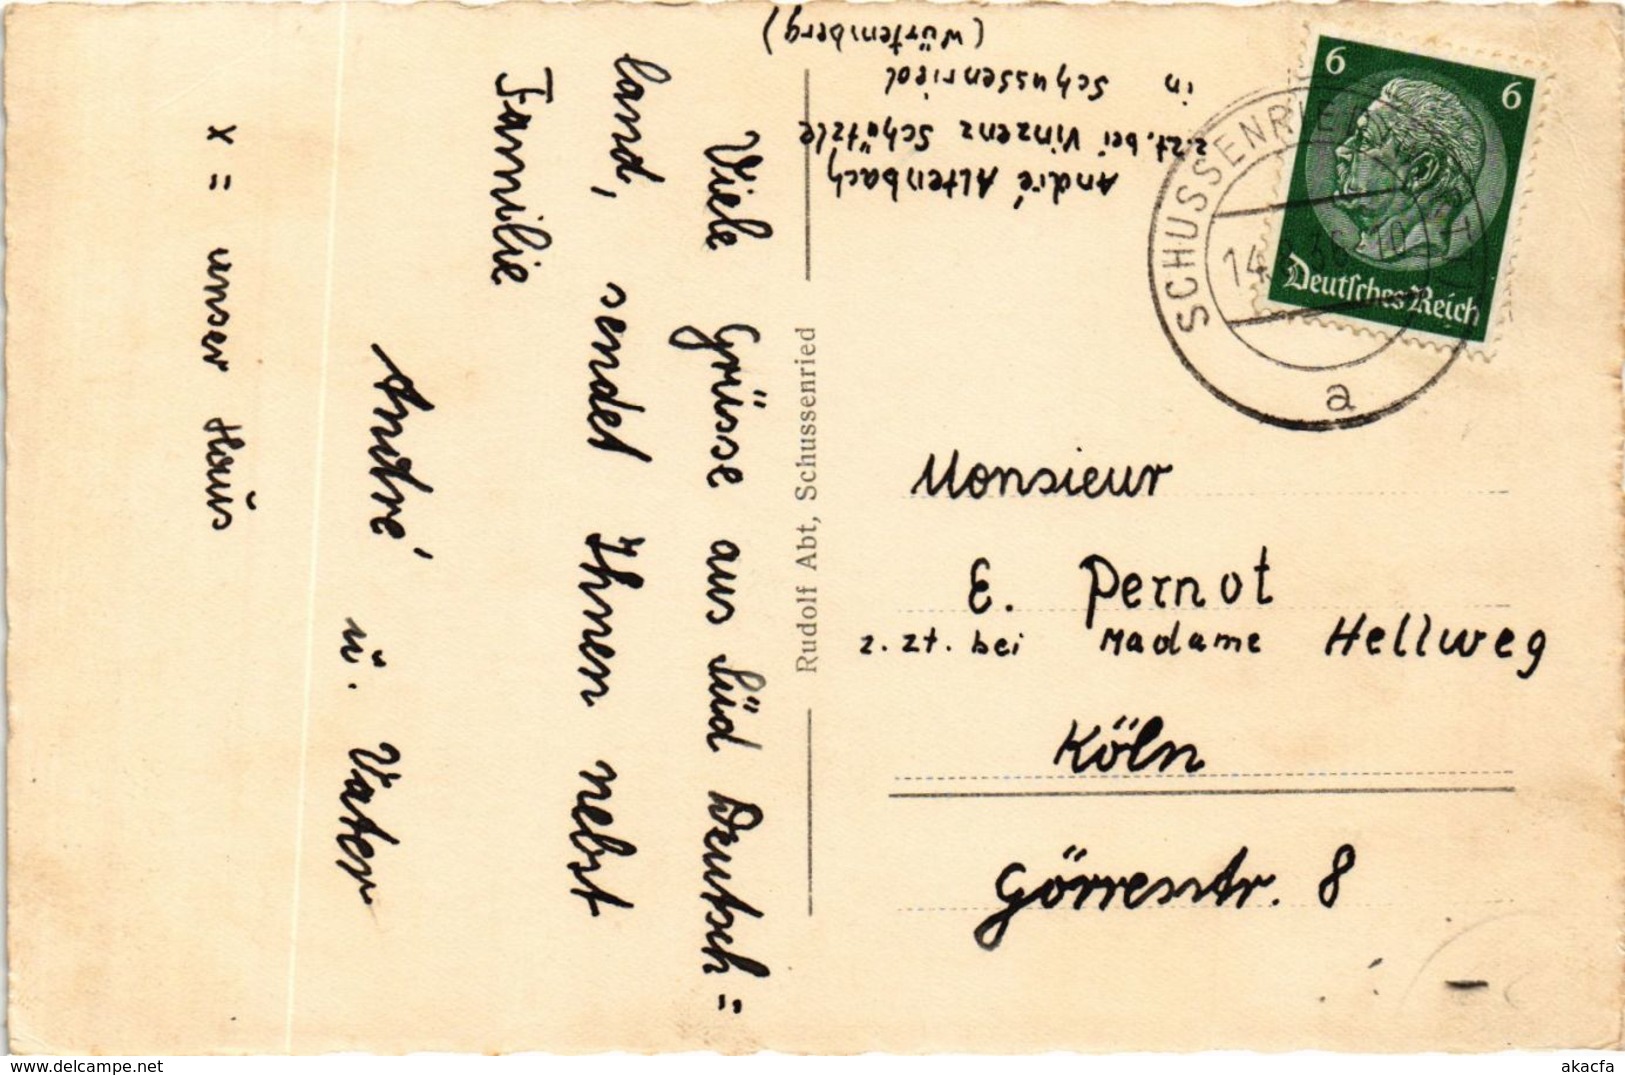 Viele Grüsse aus Süd Deutsch=
land, sendet Ihnen nebst
Familie
André u. Vater
x = unser Haus
Rudolf Abt, Schussenried
André Altenbach
z.zt. bei Vinzenz Schätzle
in Schussenried
(Würtemberg)
6 6
Deutsches Reich
SCHUSSENRIED
14
a
Monsieur
E. Pernot
z. zt. bei Madame Hellweg
Köln
Görresstr. 8
akacfa